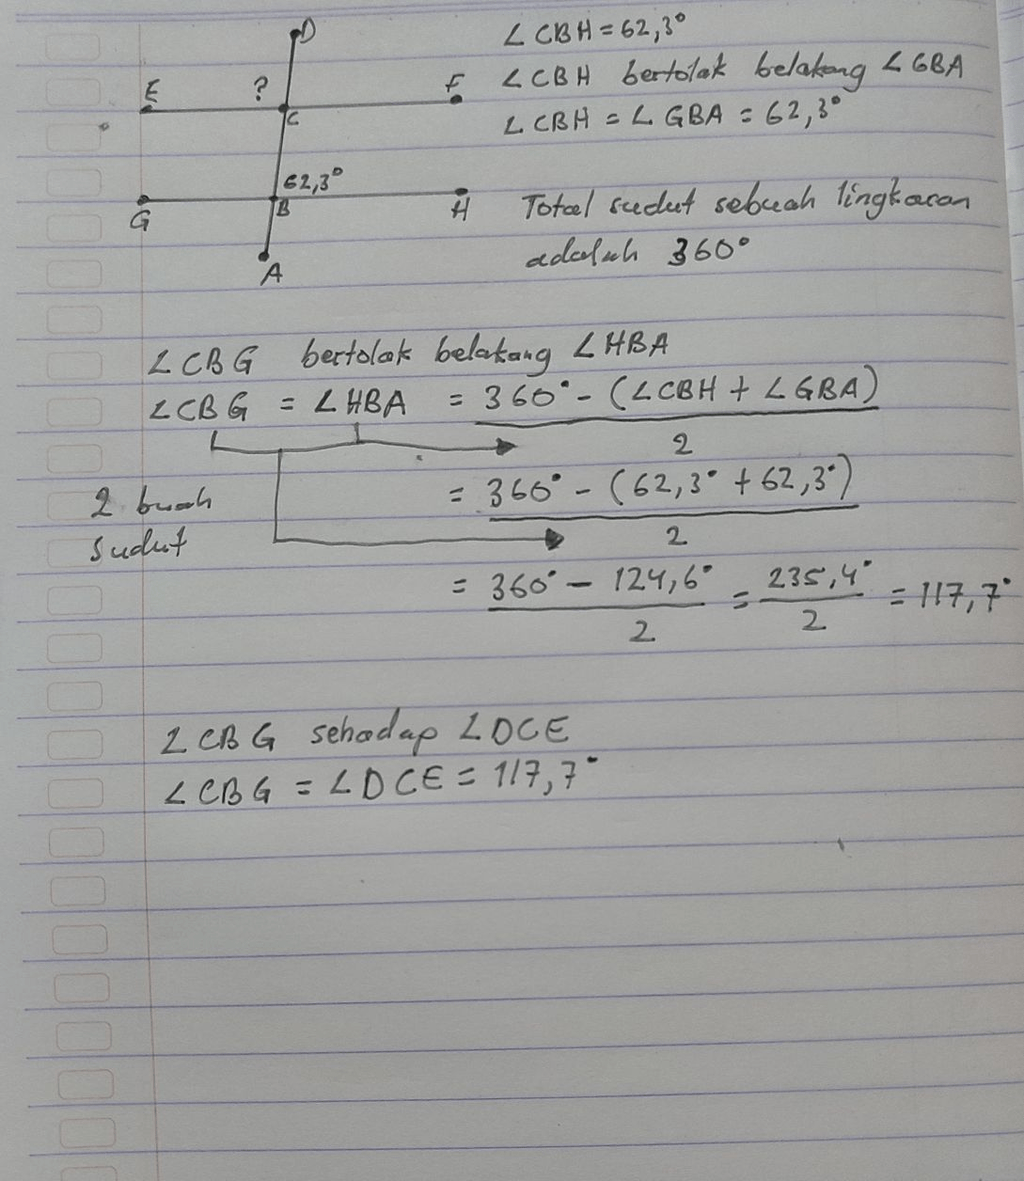 D
E ? F
C
62,3°
G B H
A
∠CBH = 62,3°
∠CBH bertolak belakang ∠GBA
∠CBH = ∠GBA = 62,3°
Total sudut sebuah lingkaran
adalah 360°
∠CBG bertolak belakang ∠HBA
∠CBG = ∠HBA = 360° - (∠CBH + ∠GBA)
2
2 buah
sudut
= 360° - (62,3° + 62,3°)
2
= 360° - 124,6° = 235,4° = 117,7°
2 2
∠CBG sehadap ∠DCE
∠CBG = ∠DCE = 117,7°